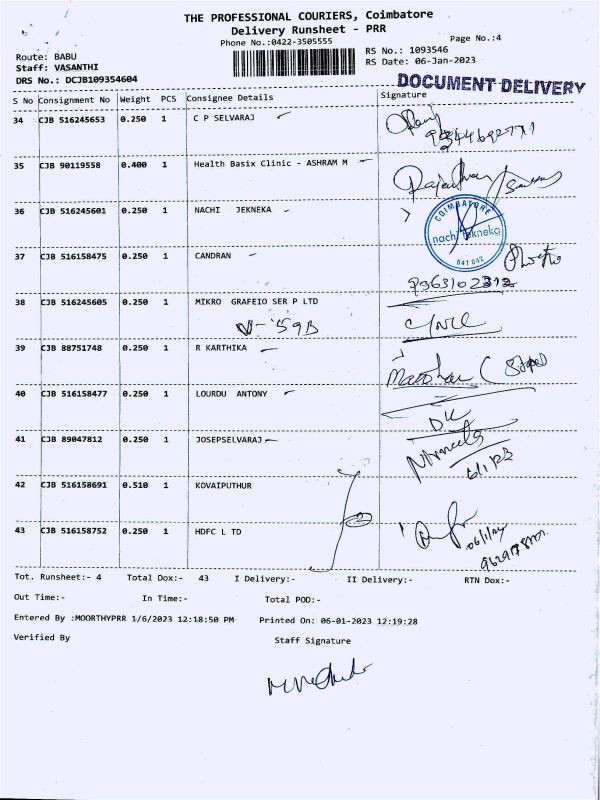 THE PROFESSIONAL COURIERS, Coimbatore
Delivery Runsheet - PRR
Phone No.:0422-3505555
Page No.:4
Route: BABU
RS No.: 1093546
Staff: VASANTHI
RS Date: 06-Jan-2023
DRS No.: DCJB109354604
DOCUMENT DELIVERY
S No Consignment No Weight PCS Consignee Details Signature
34 CJB 516245653 0.250 1 C P SELVARAJ
35 CJB 90119558 0.400 1 Health Basix Clinic - ASHRAM M
36 CJB 516245601 0.250 1 NACHI JEKNEKA
COIMBATORE
641 042
37 CJB 516158475 0.250 1 CANDRAN
38 CJB 516245605 0.250 1 MIKRO GRAFEIO SER P LTD
39 CJB 88751748 0.250 1 R KARTHIKA
40 CJB 516158477 0.250 1 LOURDU ANTONY
41 CJB 89047812 0.250 1 JOSEPSELVARAJ
6/1/23
42 CJB 516158691 0.510 1 KOVAIPUTHUR
43 CJB 516158752 0.250 1 HDFC L TD
Tot. Runsheet:- 4 Total Dox:- 43 I Delivery:- II Delivery:- RTN Dox:-
Out Time:- In Time:- Total POD:-
Entered By :MOORTHYPRR 1/6/2023 12:18:50 PM Printed On: 06-01-2023 12:19:28
Verified By Staff Signature